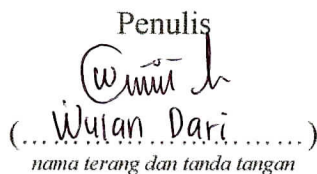 Penulis
(Wulan Dari)
nama terang dan tanda tangan